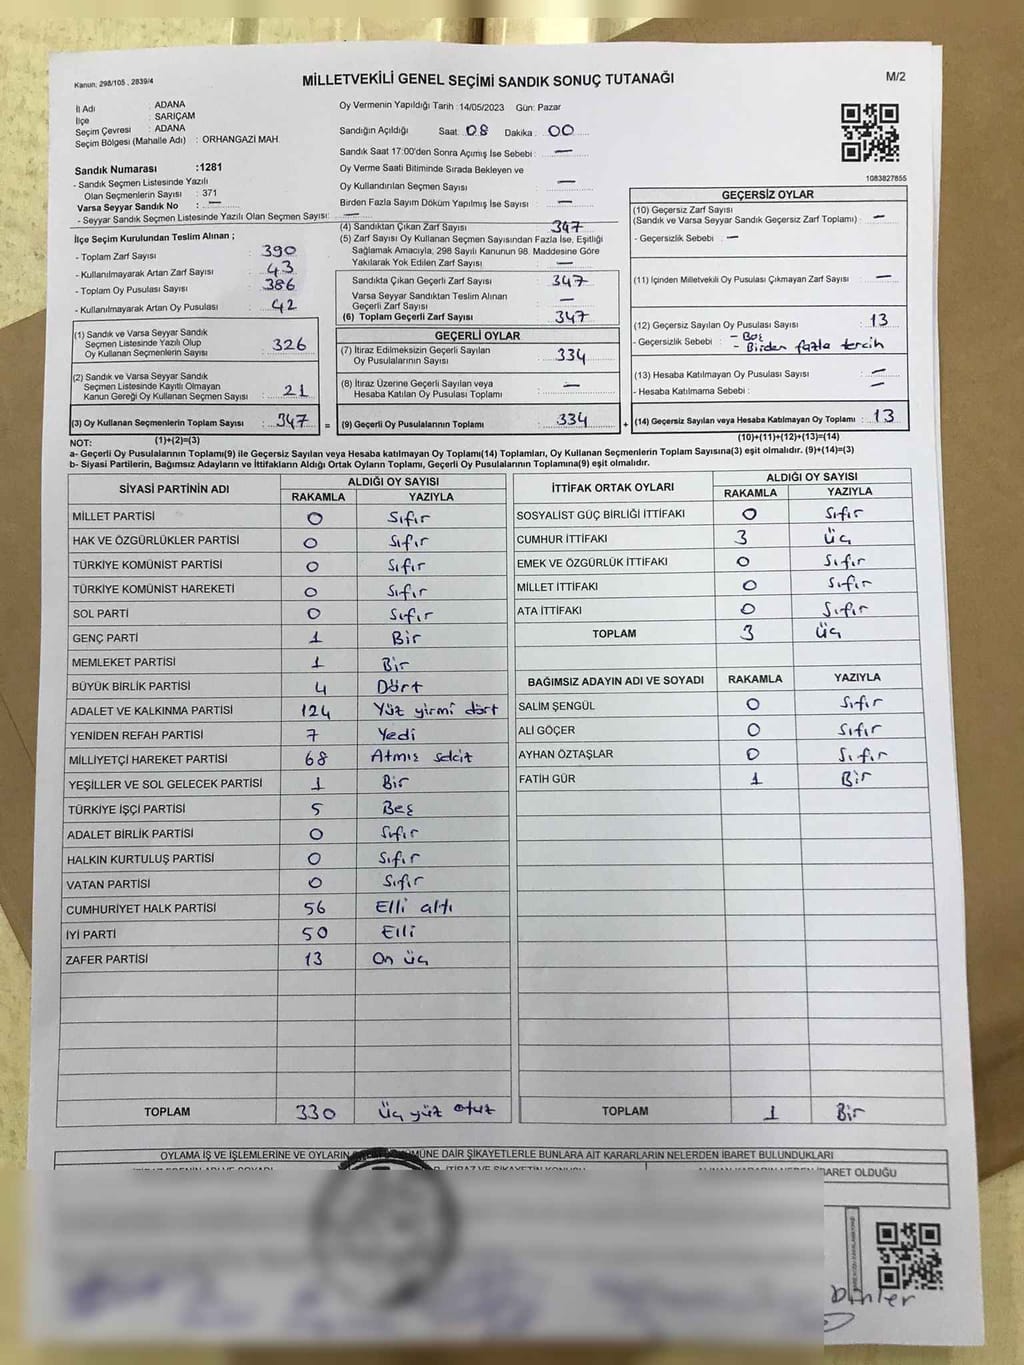 Kanun: 298/105 , 2839/4
MİLLETVEKİLİ GENEL SEÇİMİ SANDIK SONUÇ TUTANAĞI
M/2
İl Adı : ADANA
İlçe : SARIÇAM
Seçim Çevresi : ADANA
Seçim Bölgesi (Mahalle Adı) : ORHANGAZİ MAH.
Sandık Numarası :1281
- Sandık Seçmen Listesinde Yazılı
Olan Seçmenlerin Sayısı : 371
Varsa Seyyar Sandık No : —
- Seyyar Sandık Seçmen Listesinde Yazılı Olan Seçmen Sayısı: —
İlçe Seçim Kurulundan Teslim Alınan ;
- Toplam Zarf Sayısı : 390
- Kullanılmayarak Artan Zarf Sayısı : 43
- Toplam Oy Pusulası Sayısı : 386
- Kullanılmayarak Artan Oy Pusulası : 42
(1) Sandık ve Varsa Seyyar Sandık
Seçmen Listesinde Yazılı Olup
Oy Kullanan Seçmenlerin Sayısı : 326
(2) Sandık ve Varsa Seyyar Sandık
Seçmen Listesinde Kayıtlı Olmayan
Kanun Gereği Oy Kullanan Seçmen Sayısı : 21
(3) Oy Kullanan Seçmenlerin Toplam Sayısı : 347 =
Oy Vermenin Yapıldığı Tarih :14/05/2023 Gün: Pazar
Sandığın Açıldığı Saat: 08 Dakika : 00
Sandık Saat 17:00'den Sonra Açımış İse Sebebi : —
Oy Verme Saati Bitiminde Sırada Bekleyen ve
Oy Kullandırılan Seçmen Sayısı : —
Birden Fazla Sayım Döküm Yapılmış İse Sayısı : —
(4) Sandıktan Çıkan Zarf Sayısı : 347
(5) Zarf Sayısı Oy Kullanan Seçmen Sayısından Fazla İse, Eşitliği
Sağlamak Amacıyla, 298 Sayılı Kanunun 98. Maddesine Göre
Yakılarak Yok Edilen Zarf Sayısı : —
Sandıkta Çıkan Geçerli Zarf Sayısı : 347
Varsa Seyyar Sandıktan Teslim Alınan
Geçerli Zarf Sayısı : —
(6) Toplam Geçerli Zarf Sayısı : 347
GEÇERLİ OYLAR
(7) İtiraz Edilmeksizin Geçerli Sayılan
Oy Pusulalarının Sayısı : 334
(8) İtiraz Üzerine Geçerli Sayılan veya
Hesaba Katılan Oy Pusulası Toplamı : —
(9) Geçerli Oy Pusulalarının Toplamı : 334 +
1083827855
GEÇERSİZ OYLAR
(10) Geçersiz Zarf Sayısı
(Sandık ve Varsa Seyyar Sandık Geçersiz Zarf Toplamı) : —
- Geçersizlik Sebebi : —
(11) İçinden Milletvekili Oy Pusulası Çıkmayan Zarf Sayısı : —
(12) Geçersiz Sayılan Oy Pusulası Sayısı : 13
- Geçersizlik Sebebi : - Boş
- Birden fazla tercih
(13) Hesaba Katılmayan Oy Pusulası Sayısı : —
- Hesaba Katılmama Sebebi : —
(14) Geçersiz Sayılan veya Hesaba Katılmayan Oy Toplamı : 13
NOT: (1)+(2)=(3)
(10)+(11)+(12)+(13)=(14)
a- Geçerli Oy Pusulalarının Toplamı(9) ile Geçersiz Sayılan veya Hesaba katılmayan Oy Toplamı(14) Toplamları, Oy Kullanan Seçmenlerin Toplam Sayısına(3) eşit olmalıdır. (9)+(14)=(3)
b- Siyasi Partilerin, Bağımsız Adayların ve İttifakların Aldığı Ortak Oyların Toplamı, Geçerli Oy Pusulalarının Toplamına(9) eşit olmalıdır.
SİYASİ PARTİNİN ADI ALDIĞI OY SAYISI
RAKAMLA YAZIYLA
MİLLET PARTİSİ 0 Sıfır
HAK VE ÖZGÜRLÜKLER PARTİSİ 0 Sıfır
TÜRKİYE KOMÜNİST PARTİSİ 0 Sıfır
TÜRKİYE KOMÜNİST HAREKETİ 0 Sıfır
SOL PARTİ 0 Sıfır
GENÇ PARTİ 1 Bir
MEMLEKET PARTİSİ 1 Bir
BÜYÜK BİRLİK PARTİSİ 4 Dört
ADALET VE KALKINMA PARTİSİ 124 Yüz yirmi dört
YENİDEN REFAH PARTİSİ 7 Yedi
MİLLİYETÇİ HAREKET PARTİSİ 68 Atmış sekiz
YEŞİLLER VE SOL GELECEK PARTİSİ 1 Bir
TÜRKİYE İŞÇİ PARTİSİ 5 Beş
ADALET BİRLİK PARTİSİ 0 Sıfır
HALKIN KURTULUŞ PARTİSİ 0 Sıfır
VATAN PARTİSİ 0 Sıfır
CUMHURİYET HALK PARTİSİ 56 Elli altı
İYİ PARTİ 50 Elli
ZAFER PARTİSİ 13 On üç
TOPLAM 330 Üç yüz otuz
İTTİFAK ORTAK OYLARI ALDIĞI OY SAYISI
RAKAMLA YAZIYLA
SOSYALİST GÜÇ BİRLİĞİ İTTİFAKI 0 Sıfır
CUMHUR İTTİFAKI 3 Üç
EMEK VE ÖZGÜRLÜK İTTİFAKI 0 Sıfır
MİLLET İTTİFAKI 0 Sıfır
ATA İTTİFAKI 0 Sıfır
TOPLAM 3 Üç
BAĞIMSIZ ADAYIN ADI VE SOYADI RAKAMLA YAZIYLA
SALİM ŞENGÜL 0 Sıfır
ALİ GÖÇER 0 Sıfır
AYHAN ÖZTAŞLAR 0 Sıfır
FATİH GÜR 1 Bir
TOPLAM 1 Bir
OYLAMA İŞ VE İŞLEMLERİNE VE OYLARIN DÖKÜMÜNE DAİR ŞİKAYETLERLE BUNLARA AİT KARARLARIN NELERDEN İBARET BULUNDUKLARI
İBARET OLDUĞU